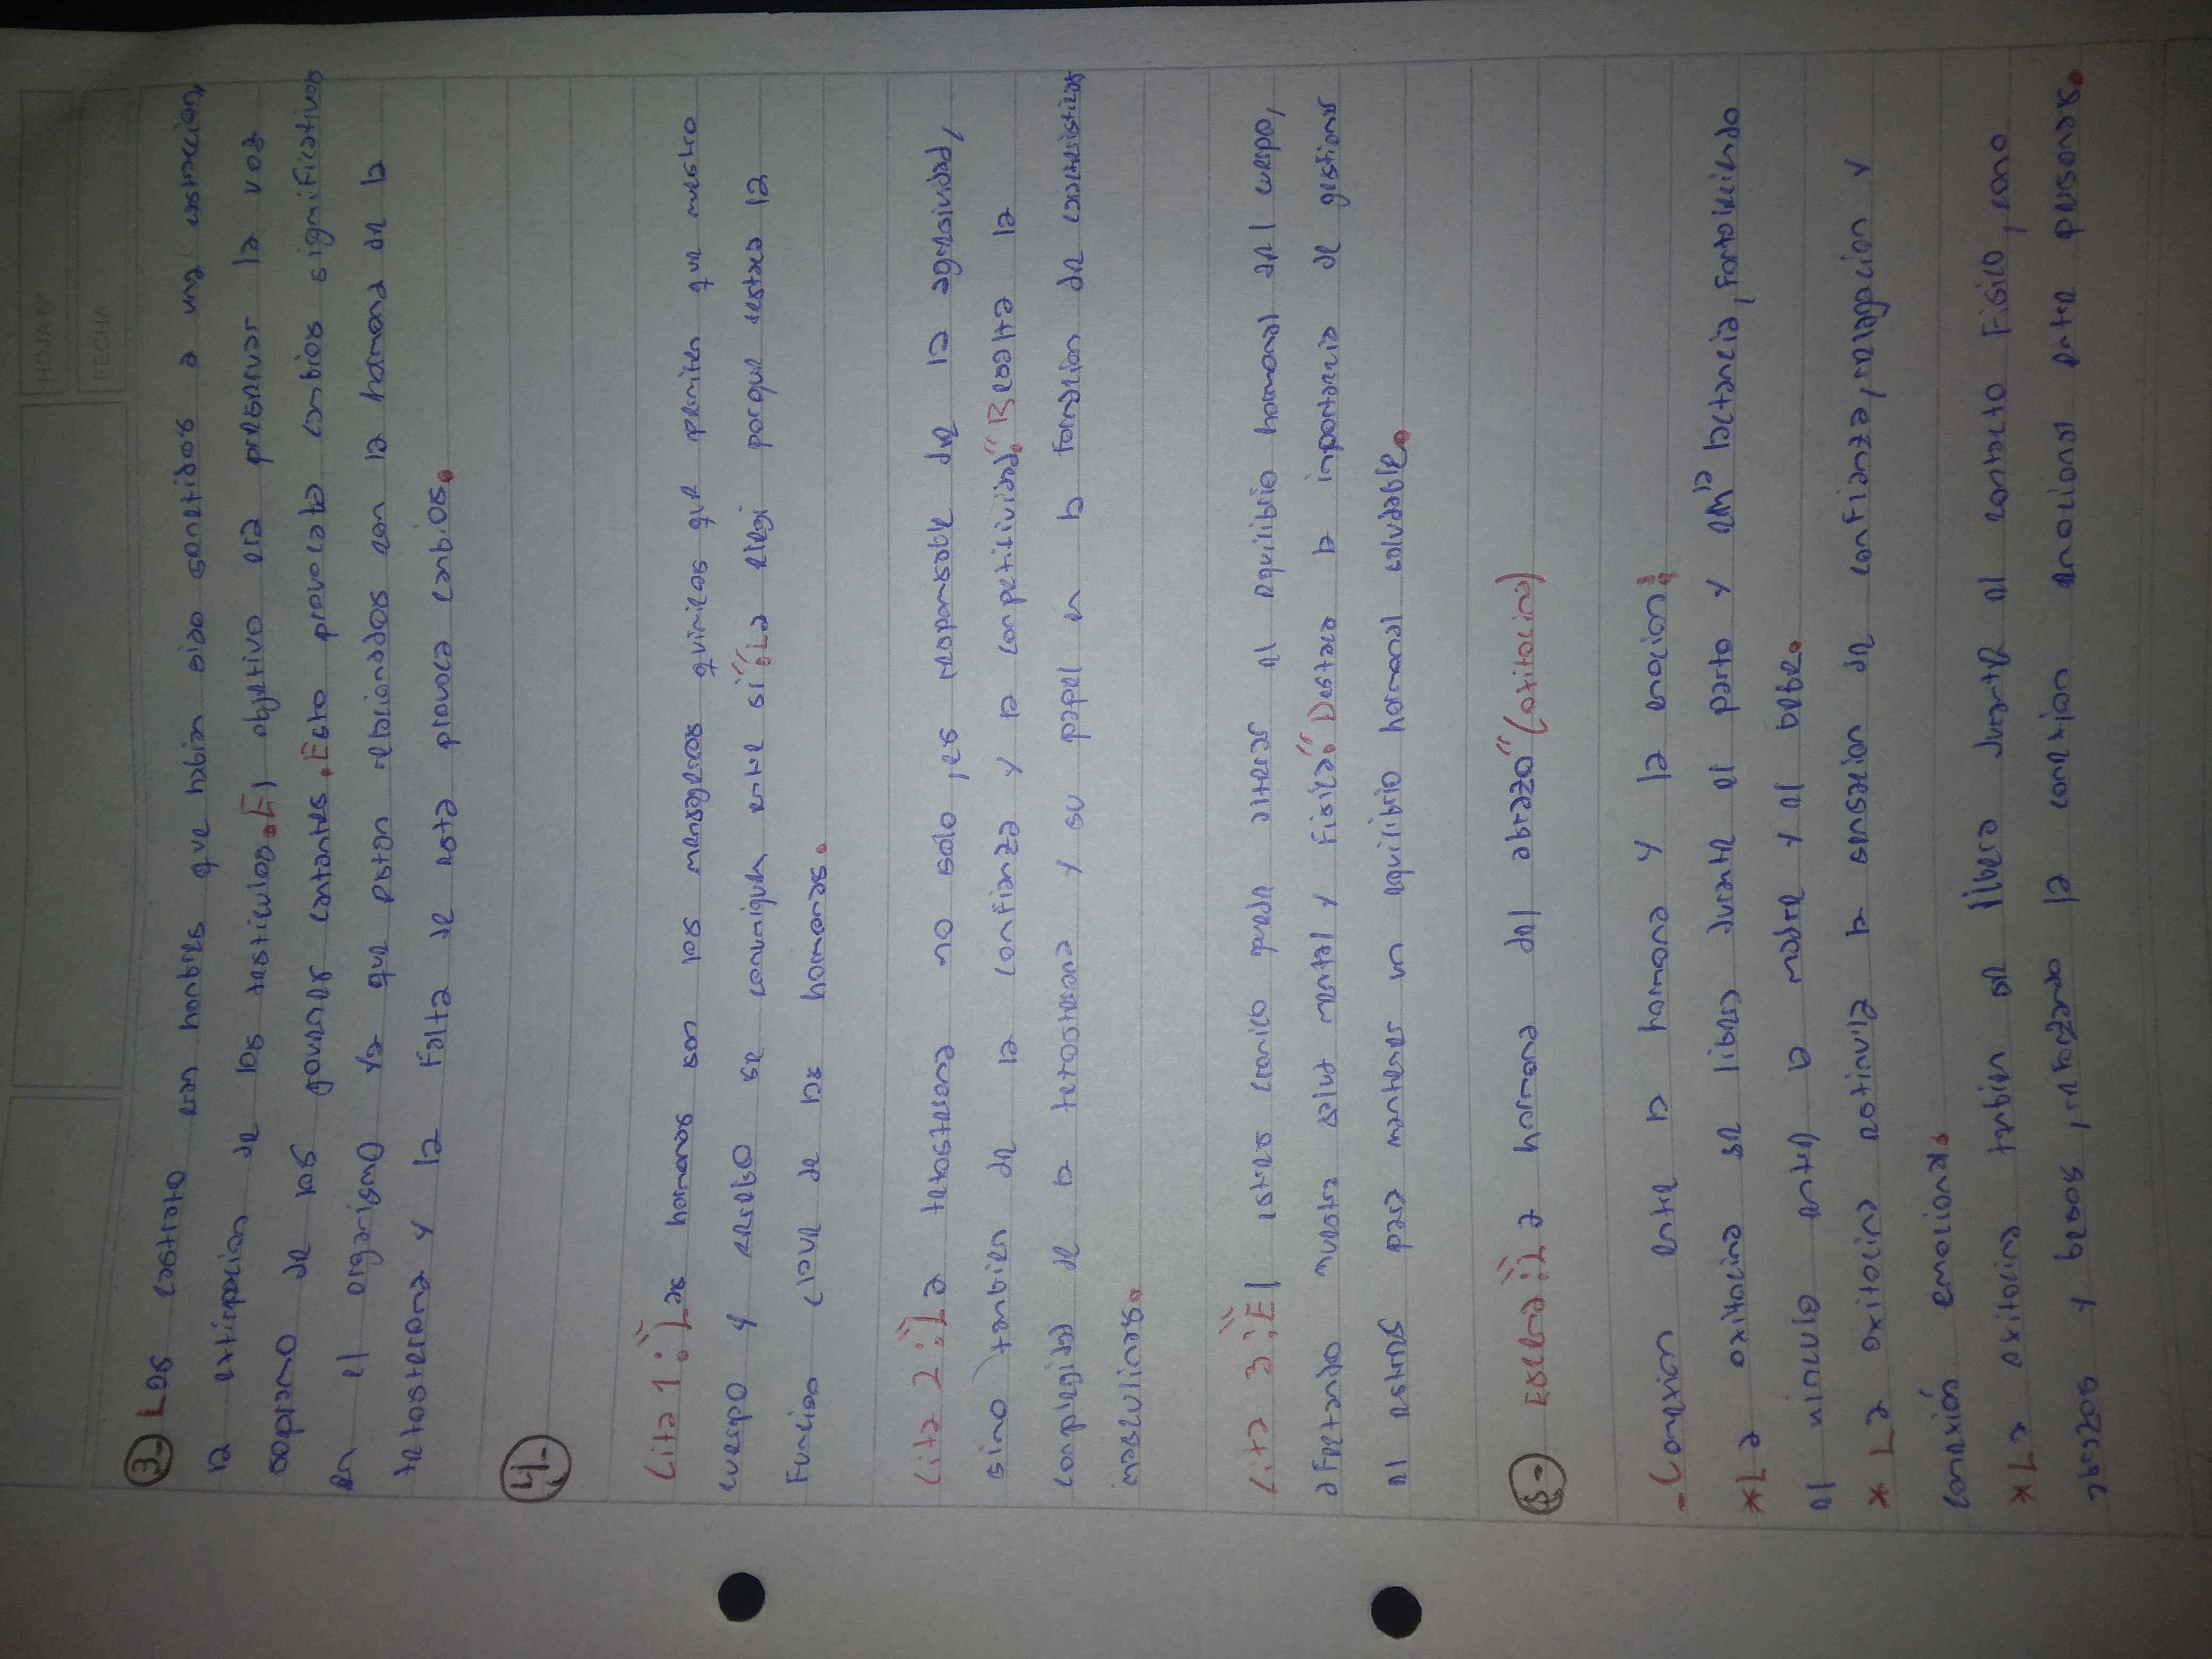 HOJA Nº
FECHA
3- Los castrato eran hombres que habian sido sometidos a una castracion,
la extirpacion de los testiculos. El objetivo era preservar la voz
soprano de los jovenes cantantes. Esto provocaba cambios significativos
en el organismo ya que estan relacionados con la hormona de la
testosterona y la falta de esta provoca cambios.
4-
Cita 1: "Las hormonas son los mensajeros quimicos que permiten que nuestro
cuerpo y cerebro se comuniquen entre si". La elegi porque destaca la
Funcion clave de las hormonas.
Cita 2: "La testosterona no solo, es responsable de la agresividad,
sino tambien de la confianza y la competitividad". Resalta la
complejidad de la testosterona y su papel en la formacion de caracteristicas
masculinas.
Cita 3: "El estres cronico puede alterar el equilibrio hormonal del cuerpo,
afectando nuestra salut mental y Fisica". Destaca la importancia de gestionar
el estres para mantener un equilibrio hormonal saludable.
5- Escena: "La hormona del abrazo" (oxitocina)
- Conexion entre la hormona y la emocion:
* La oxitocina se libera durante el parto y en la lactancia, Fortaleciendo
el vinculo entre la madre y el bebe.
* La oxitocina estimula la sensacion de confianza, relagacion y
conexión emocional.
* La oxitocina tambien se libera durante el contacto Fisico, como
abrazos y besos, reforzando la conexion emocional entre personas.